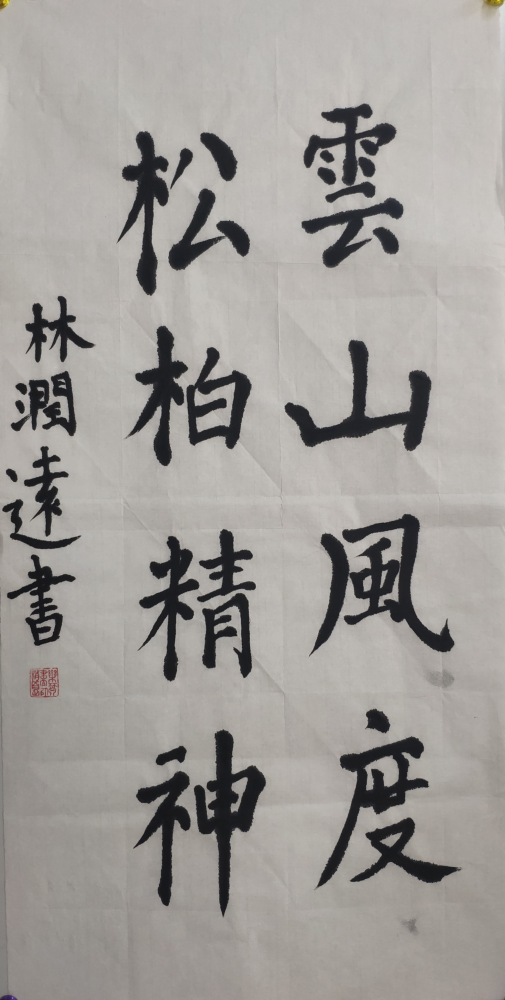 雲山風度
松柏精神
林潤遠書